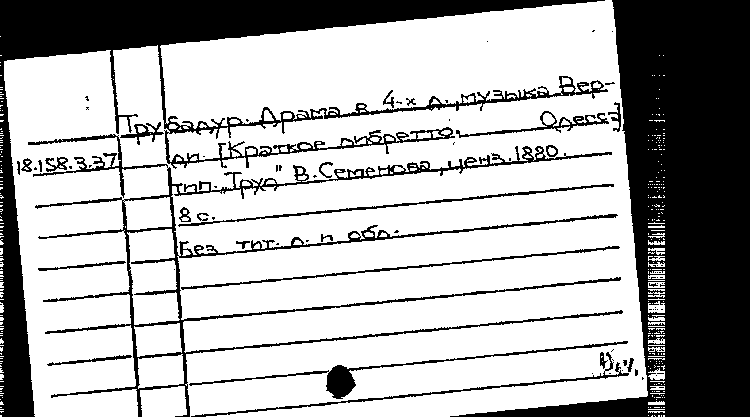 Трубадур. Драма в 4-х д., музыка Вер-
18.158.3.37 ди. [Краткое либретто. Одесса]
тип. „Труд" В. Семенова, ценз. 1880.
8 с.
Без тит. л. и обл.